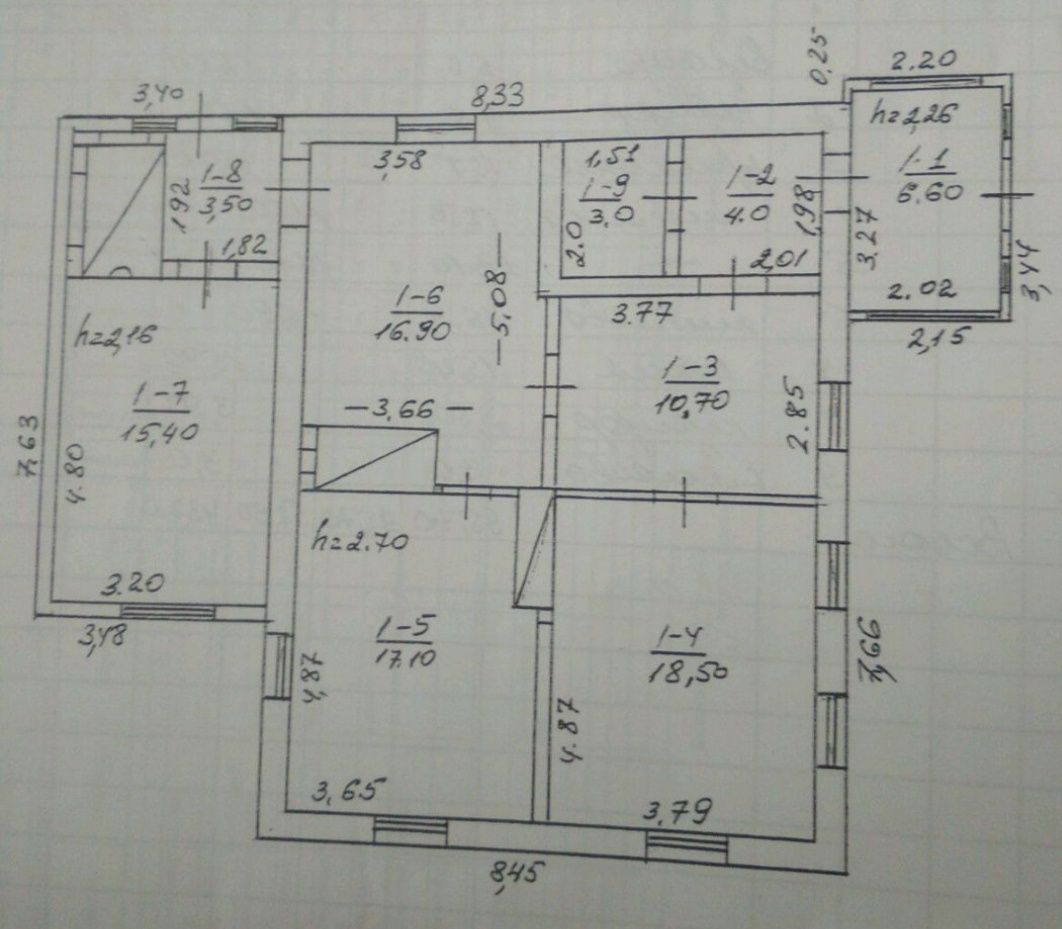 0,25
2.20
3,40
8,33
h=2,26
3,58
1,51
1-8
3,50
1-9
3.0
1-2
4.0
1-1
6.60
1,92
1,98
3.27
2.0
1,82
2,01
3,44
2.02
1-6
16.90
5.08
3.77
h=2,16
2,15
1-7
15,40
3,66
1-3
10,70
2.85
7,63
4.80
h=2.70
3.20
3,48
1-5
17.10
1-4
18,50
7,66
4,87
4.87
3,65
3,79
8,45